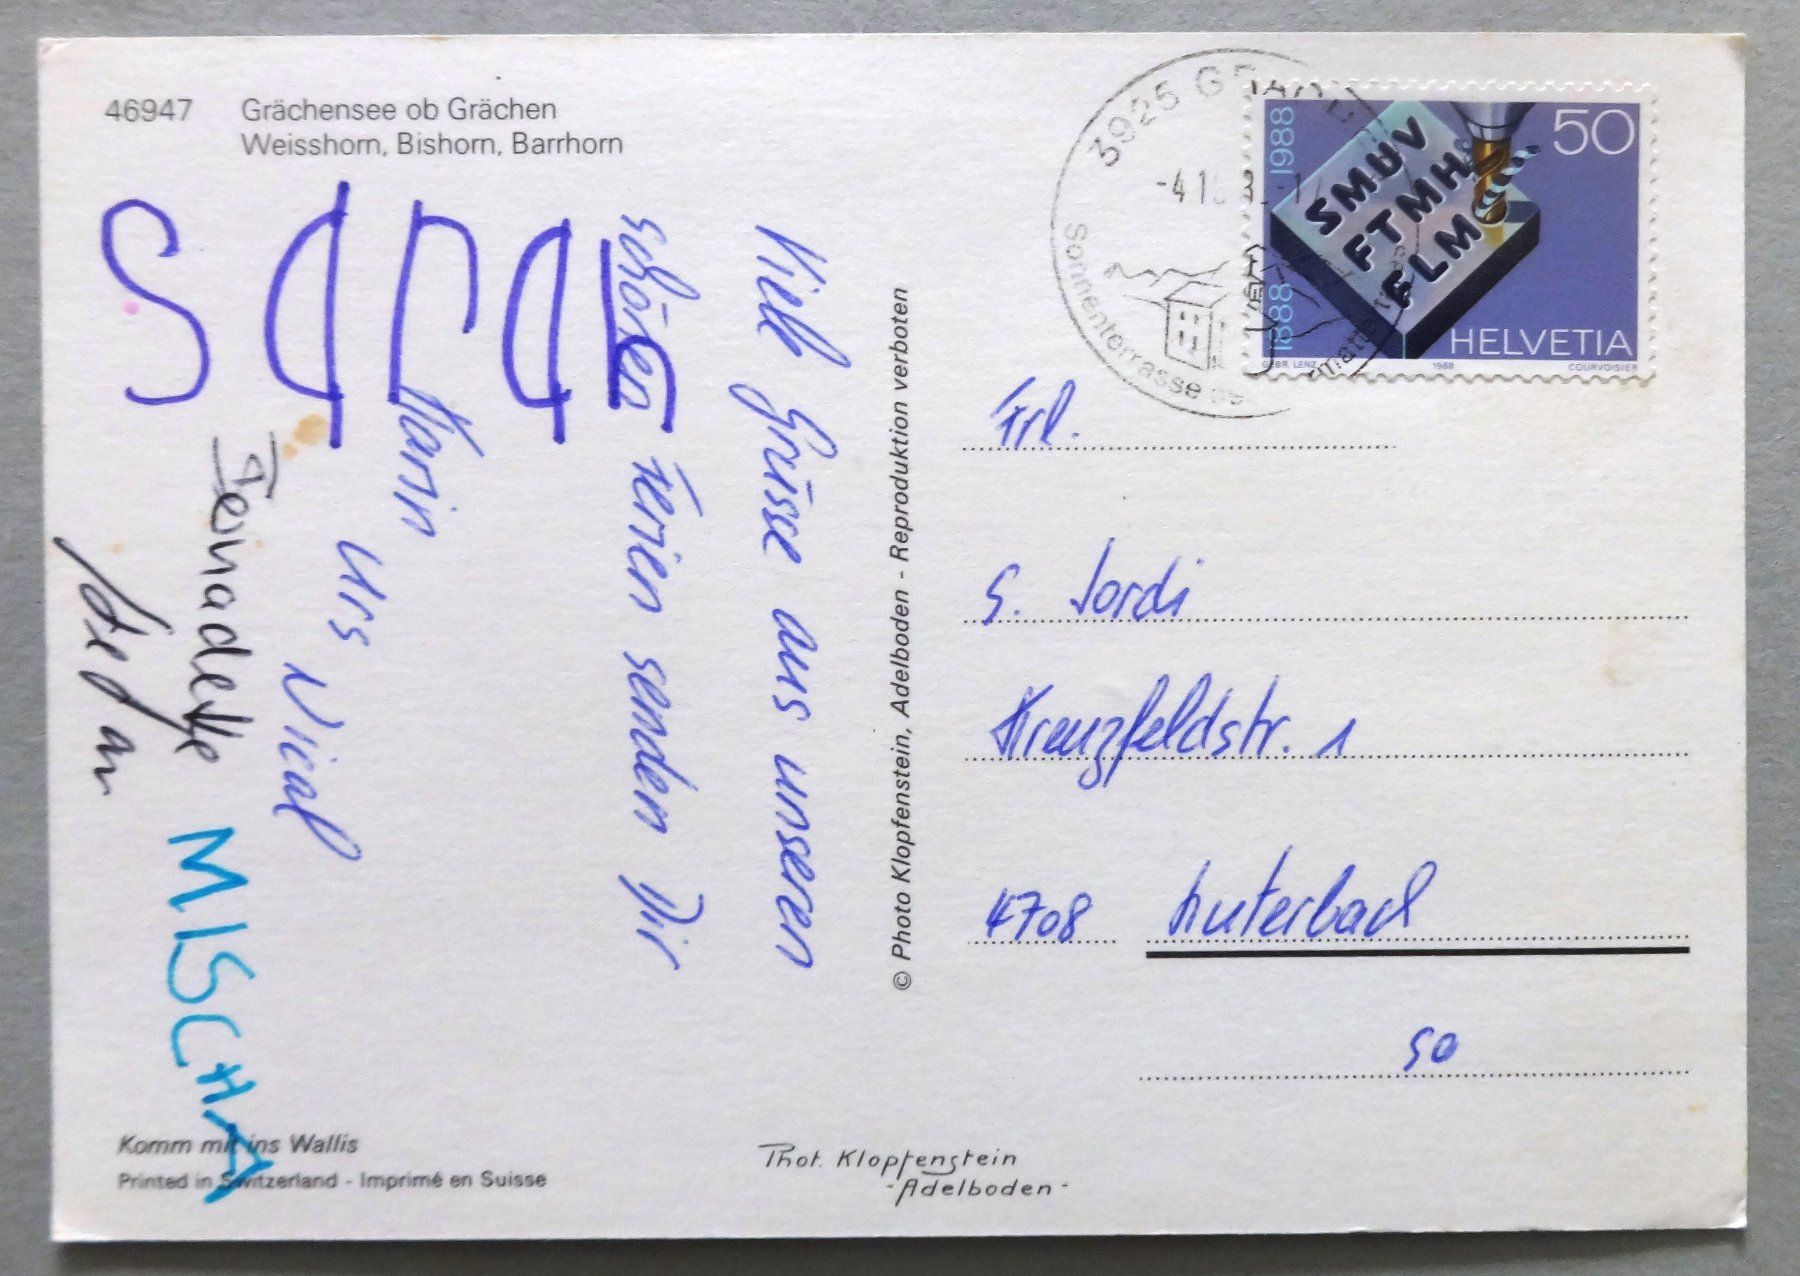 46947 Grächensee ob Grächen
Weisshorn, Bishorn, Barrhorn
Viele Grüsse aus unseren
schönen Ferien senden Dir
Karin
Urs Nicol
Bernadette
Stefan
MISCHA
Komm mit ins Wallis
Printed in Switzerland - Imprimé en Suisse
© Photo Klopfenstein, Adelboden - Reproduktion verboten
Phot. Klopfenstein
-Adelboden-
3925
Sonnenterrasse
1888 1988
50
SMUV
FTMH
FLM
HELVETIA
GEBR. LENZ 1988 COURVOISIER
Frl.
S. Jordi
Kreuzfeldstr. 1
4708 Luterbach
SO